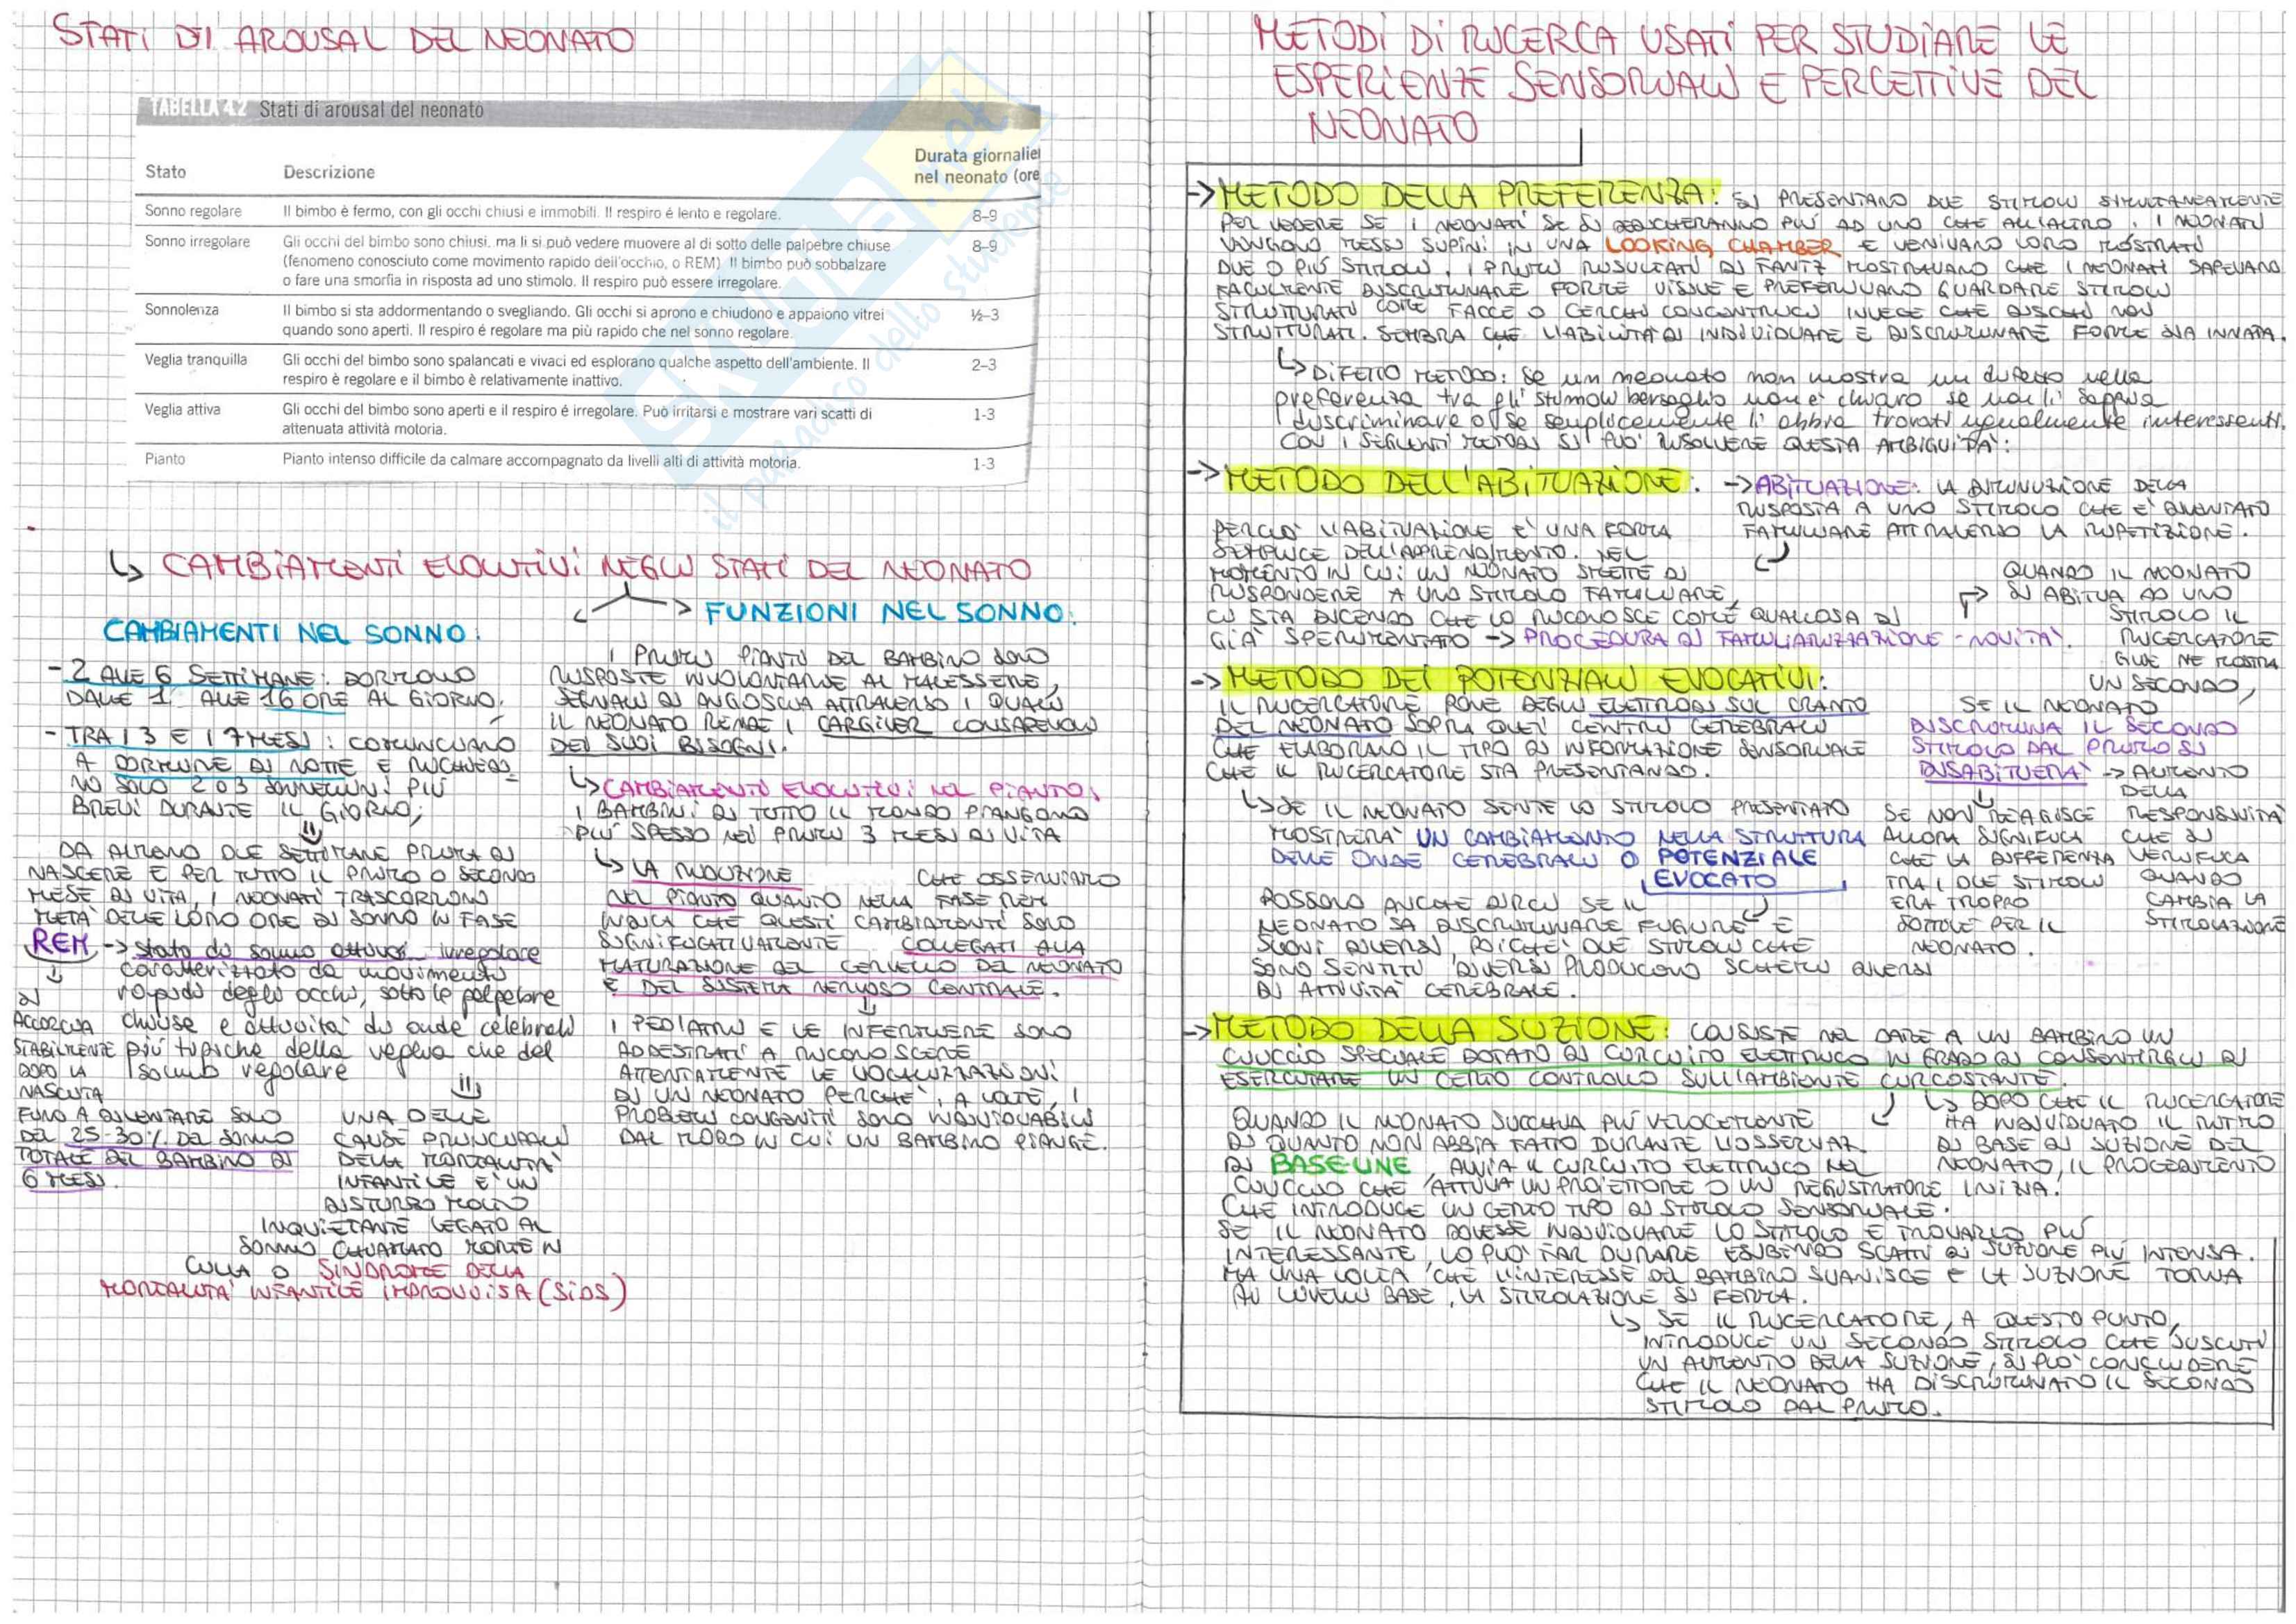 STATI DI AROUSAL DEL NEONATO
TABELLA 4.2 Stati di arousal del neonato
Stato Descrizione Durata giornalier nel neonato (ore
Sonno regolare Il bimbo è fermo, con gli occhi chiusi e immobili. Il respiro é lento e regolare. 8–9
Sonno irregolare Gli occhi del bimbo sono chiusi, ma li si può vedere muovere al di sotto delle palpebre chiuse 8–9
(fenomeno conosciuto come movimento rapido dell'occhio, o REM) Il bimbo può sobbalzare
o fare una smorfia in risposta ad uno stimolo. Il respiro può essere irregolare.
Sonnolenza Il bimbo si sta addormentando o svegliando. Gli occhi si aprono e chiudono e appaiono vitrei ½–3
quando sono aperti. Il respiro é regolare ma più rapido che nel sonno regolare.
Veglia tranquilla Gli occhi del bimbo sono spalancati e vivaci ed esplorano qualche aspetto dell'ambiente. Il 2–3
respiro è regolare e il bimbo è relativamente inattivo.
Veglia attiva Gli occhi del bimbo sono aperti e il respiro é irregolare. Può irritarsi e mostrare vari scatti di 1-3
attenuata attività motoria.
Pianto Pianto intenso difficile da calmare accompagnato da livelli alti di attività motoria. 1-3
skuola.net
il paradiso dello studente
↳ CAMBIAMENTI EVOLUTIVI NEGLI STATI DEL NEONATO
CAMBIAMENTI NEL SONNO:
- 2 ALLE 6 SETTIMANE: DORMONO
DALLE 1 ALLE 16 ORE AL GIORNO.
- TRA I 3 E I 7 MESI: COMINCIANO
A DORMIRE DI NOTTE E RICHIEDO-
NO SOLO 2 O 3 SONNELLINI PIÙ
BREVI DURANTE IL GIORNO;
DA ALMENO DUE SETTIMANE PRIMA DI
NASCERE E PER TUTTO IL PRIMO O SECONDO
MESE DI VITA, I NEONATI TRASCORRONO
METÀ DELLE LORO ORE DI SONNO IN FASE
REM -> stato di sonno attivo irregolare
caratterizzato da movimenti
rapidi degli occhi, sotto le palpebre
chiuse e attività di onde celebrali
più tipiche della veglia che del
sonno regolare
SI
ACCORCIA
STABILMENTE
DOPO LA
NASCITA
FINO A DIVENTARE SOLO
DEL 25-30% DEL SONNO
TOTALE DEL BAMBINO DI
6 MESI.
UNA DELLE
CAUSE PRINCIPALI
DELLA MORTALITÀ
INFANTILE È UN
DISTURBO MOLTO
INQUIETANTE LEGATO AL
SONNO CHIAMATO MORTE IN
CULLA O SINDROME DELLA
MORTALITÀ INFANTILE IMPROVVISA (SIDS)
FUNZIONI NEL SONNO:
I PRIMI PIANTI DEL BAMBINO SONO
RISPOSTE INVOLONTARIE AL MALESSERE,
SEGNALI DI ANGOSCIA ATTRAVERSO I QUALI
IL NEONATO RENDE I CARGIVER CONSAPEVOLI
DEI SUOI BISOGNI.
↳ CAMBIAMENTI EVOLUTIVI NEL PIANTO:
I BAMBINI DI TUTTO IL MONDO PIANGONO
PIÙ SPESSO NEI PRIMI 3 MESI DI VITA
↳ LA RIDUZIONE CHE OSSERVIAMO
NEL PIANTO QUANTO NELLA FASE REM
INDICA CHE QUESTI CAMBIAMENTI SONO
SIGNIFICATIVAMENTE COLLEGATI ALLA
MATURAZIONE DEL CERVELLO DEL NEONATO
E DEL SISTEMA NERVOSO CENTRALE.
I PEDIATRI E LE INFERMIERE SONO
ADDESTRATI A RICONOSCERE
ATTENTAMENTE LE VOCALIZZAZIONI
DI UN NEONATO PERCHÈ, A VOLTE, I
PROBLEMI CONGENITI SONO INDIVIDUABILI
DAL MODO IN CUI UN BAMBINO PIANGE.
METODI DI RICERCA USATI PER STUDIARE LE
ESPERIENZE SENSORIALI E PERCETTIVE DEL
NEONATO
-> METODO DELLA PREFERENZA: SI PRESENTANO DUE STIMOLI SIMULTANEAMENTE
PER VEDERE SE I NEONATI SE SI DEDICHERANNO PIÙ AD UNO CHE ALL'ALTRO. I NEONATI
VENGONO MESSI SUPINI IN UNA LOOKING CHAMBER E VENIVANO LORO MOSTRATI
DUE O PIÙ STIMOLI. I PRIMI RISULTATI DI FANTZ MOSTRAVANO CHE I NEONATI SAPEVANO
FACILMENTE DISCRIMINARE FORME VISIVE E PREFERIVANO GUARDARE STIMOLI
STRUTTURATI COME FACCE O CERCHI CONCENTRICI INVECE CHE DISCHI NON
STRUTTURATI. SEMBRA CHE L'ABILITÀ DI INDIVIDUARE E DISCRIMINARE FORME SIA INNATA.
↳ DIFETTO METODO: se un neonato non mostra un difetto nella
preferenza tra gli stimoli bersaglio non è chiaro se non li sapeva
discriminare o se semplicemente li abbia trovati ugualmente interessanti.
CON I SEGUENTI METODI SI PUÒ RISOLVERE QUESTA AMBIGUITÀ:
-> METODO DELL'ABITUAZIONE: -> ABITUAZIONE: LA DIMINUZIONE DELLA
RISPOSTA A UNO STIMOLO CHE È DIVENTATO
FAMILIARE ATTRAVERSO LA RIPETIZIONE.
PERCIÒ L'ABITUAZIONE È UNA FORMA
SEMPLICE DELL'APPRENDIMENTO. NEL
MOMENTO IN CUI UN NEONATO SMETTE DI
RISPONDERE A UNO STIMOLO FAMILIARE,
CI STA DICENDO CHE LO RICONOSCE COME QUALCOSA DI
GIÀ SPERIMENTATO -> PROCEDURA DI FAMILIARIZZAZIONE - NOVITÀ.
QUANDO IL NEONATO
SI ABITUA AD UNO
STIMOLO IL
RICERCATORE
GLIE NE MOSTRA
UN SECONDO,
SE IL NEONATO
DISCRIMINA IL SECONDO
STIMOLO DAL PRIMO SI
DISABITUERÀ -> AUMENTO
DELLA
RESPONSIVITÀ
CHE SI
VERIFICA
QUANDO
CAMBIA LA
STIMOLAZIONE
SE NON REAGISCE
ALLORA SIGNIFICA
CHE LA DIFFERENZA
TRA I DUE STIMOLI
ERA TROPPO
SOTTILE PER IL
NEONATO.
-> METODO DEI POTENZIALI EVOCATIVI:
IL RICERCATORE PONE DEGLI ELETTRODI SUL CRANIO
DEL NEONATO SOPRA QUEI CENTRI CEREBRALI
CHE ELABORANO IL TIPO DI INFORMAZIONE SENSORIALE
CHE IL RICERCATORE STA PRESENTANDO.
↳ SE IL NEONATO SENTE LO STIMOLO PRESENTATO
MOSTRERÀ UN CAMBIAMENTO NELLA STRUTTURA
DELLE ONDE CEREBRALI O POTENZIALE
EVOCATO
POSSONO ANCHE DIRCI SE IL
NEONATO SA DISCRIMINARE FIGURE E
SUONI DIVERSI, POICHÈ DUE STIMOLI CHE
SONO SENTITI DIVERSI PRODUCONO SCHEMI DIVERSI
DI ATTIVITÀ CEREBRALE.
-> METODO DELLA SUZIONE: CONSISTE NEL DARE A UN BAMBINO UN
CIUCCIO SPECIALE DOTATO DI CIRCUITO ELETTRICO IN GRADO DI CONSENTIRGLI DI
ESERCITARE UN CERTO CONTROLLO SULL'AMBIENTE CIRCOSTANTE.
↳ DOPO CHE IL RICERCATORE
HA INDIVIDUATO IL RITMO
DI BASE DI SUZIONE DEL
NEONATO, IL PROCEDIMENTO
INIZIA.
QUANDO IL NEONATO SUCCHIA PIÙ VELOCEMENTE
DI QUANTO NON ABBIA FATTO DURANTE L'OSSERVAZ.
DI BASE-LINE, AVVIA IL CIRCUITO ELETTRICO NEL
CIUCCIO CHE ATTIVA UN PROIETTORE O UN REGISTRATORE
CHE INTRODUCE UN CERTO TIPO DI STIMOLO SENSORIALE.
SE IL NEONATO DOVESSE INDIVIDUARE LO STIMOLO E TROVARLO PIÙ
INTERESSANTE, LO PUÒ FAR DURARE ESIBENDO SCATTI DI SUZIONE PIÙ INTENSA.
MA UNA VOLTA CHE L'INTERESSE DEL BAMBINO SVANISCE E LA SUZIONE TORNA
AI LIVELLI BASE, LA STIMOLAZIONE SI FERMA.
↳ SE IL RICERCATORE, A QUESTO PUNTO,
INTRODUCE UN SECONDO STIMOLO CHE SUSCITI
UN AUMENTO DELLA SUZIONE, SI PUÒ CONCLUDERE
CHE IL NEONATO HA DISCRIMINATO IL SECONDO
STIMOLO DAL PRIMO.